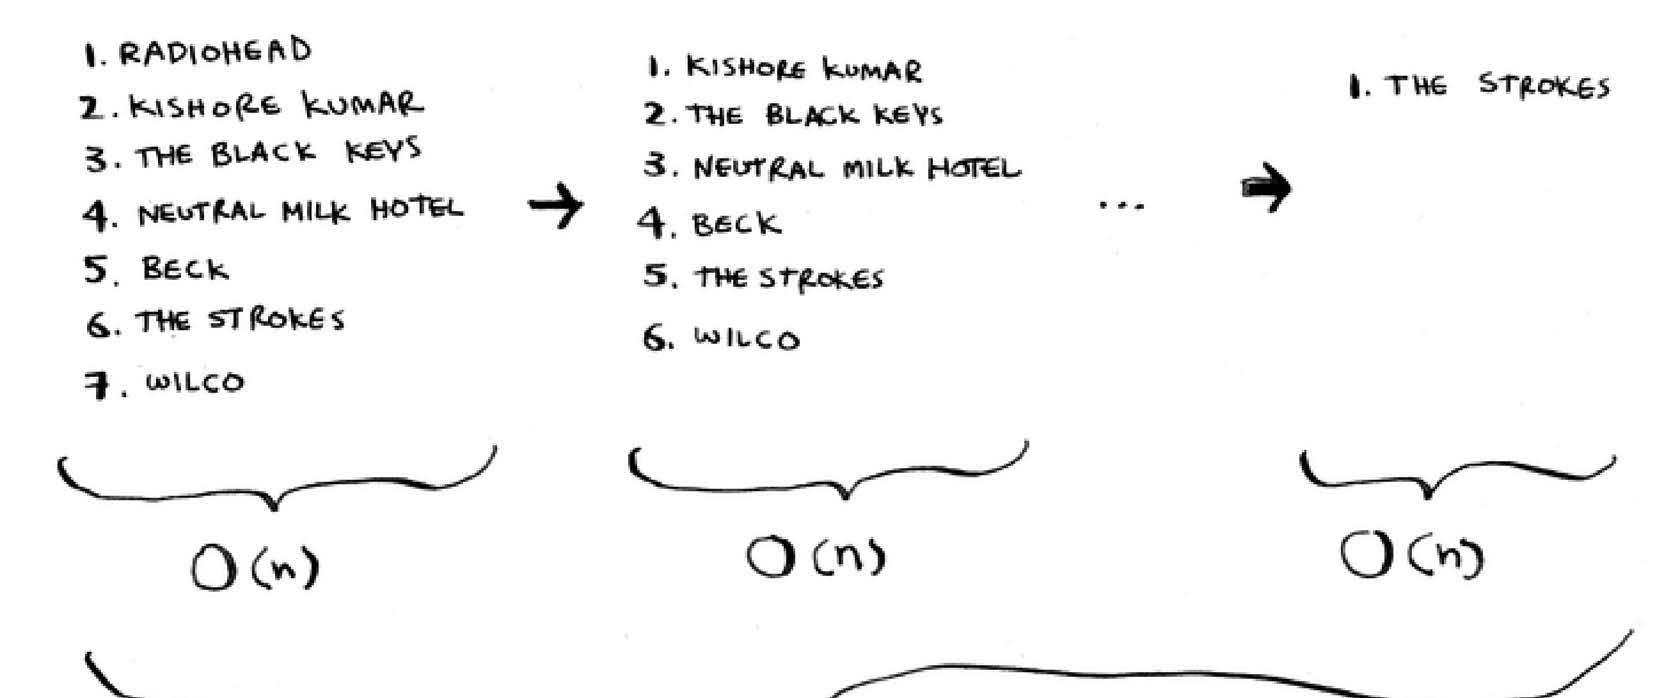 1. RADIOHEAD
2. KISHORE KUMAR
3. THE BLACK KEYS
4. NEUTRAL MILK HOTEL
5. BECK
6. THE STROKES
7. WILCO
1. KISHORE KUMAR
2. THE BLACK KEYS
3. NEUTRAL MILK HOTEL
4. BECK
5. THE STROKES
6. WILCO
...
1. THE STROKES
O(n)
O(n)
O(n)